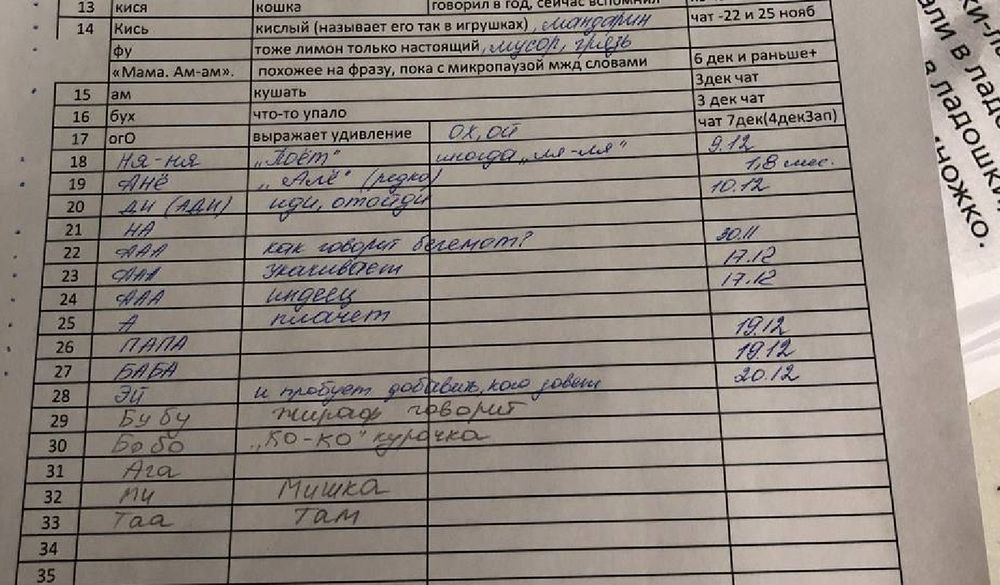 13 кися кошка говорил в год, сейчас вспомнил
14 Кись кислый (называет его так в игрушках), мандарин чат -22 и 25 нояб
фу тоже лимон только настоящий, мусор, грязь
«Мама. Ам-ам». похожее на фразу, пока с микропаузой мжд словами 6 дек и раньше+
15 ам кушать 3дек чат
16 бух что-то упало 3 дек чат
17 огО выражает удивление ох, ой чат 7дек(4декЗап)
18 ня-ня „Поёт" иногда „ля-ля" 9.12
19 АНЁ „Алё" (редко) 1,8 мес.
20 ДИ (АДИ) иди, отойди 10.12
21 НА
22 ААА как говорит бегемот? 30.11
23 ААА укачивает 17.12
24 ААА индеец 17.12
25 А плачет
26 ПАПА 19.12
27 БАБА 19.12
28 Эй и пробует добавить, кого зовет 20.12
29 Бубу жираф говорит
30 Бобо „КО-КО" курочка
31 Ага
32 Ми Мишка
33 Таа Там
34
35
в ладошки
ножко.